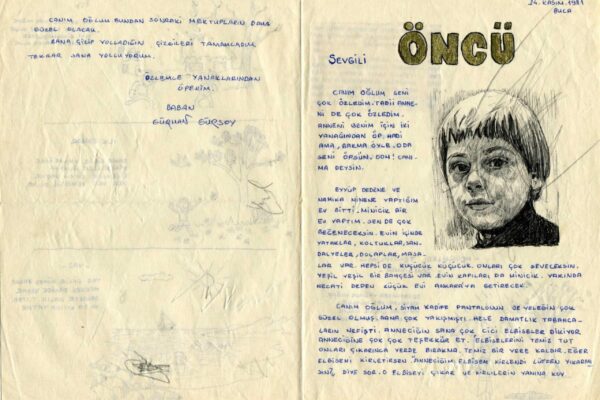 CANIM OĞLUM BUNDAN SONRAKİ MEKTUPLARIN DAHA
GÜZEL OLACAK.
BANA ÇİZİP YOLLADIĞIN ÇİZGİLERİ TAMAMLADIM
TEKRAR SANA YOLLUYORUM.
ÖZLEMLE YANAKLARINDAN
ÖPERİM.
BABAN
GÜRHAN GÜRSOY
24. KASIM. 1981
BUCA
SEVGİLİ ÖNCÜ
CANIM OĞLUM SENİ
ÇOK ÖZLEDİM. TABİİ ANNE-
Nİ DE ÇOK ÖZLEDİM.
ANNENİ BENİM İÇİN İKİ
YANAĞINDAN ÖP. HADİ
AMA, BAKMA ÖYLE. O DA
SENİ ÖPSÜN. OOH! CANI-
MA DEYSİN.
EYYÜP DEDENE VE
NAMIKA NİNENE YAPTIĞIM
EV BİTTİ. MİNİCİK BİR
EV YAPTIM. SEN DE ÇOK
BEĞENECEKSİN. EVİN İÇİNDE
YATAKLAR, KOLTUKLAR, SAN-
DALYELER, DOLAPLAR, MASA-
LAR VAR. HEPSİ DE KÜÇÜCÜK KÜÇÜCÜK. ONLARI ÇOK SEVECEKSİN.
YEŞİL YEŞİL BİR BAHÇESİ VAR EVİN KAPILARI DA MİNİCİK. YAKINDA
NECATİ DEDEN KÜÇÜK EVİ ANKARA'YA GETİRECEK.
CANIM OĞLUM, SİYAH KADİFE PANTALONUN VE YELEĞİN ÇOK
GÜZEL OLMUŞ. SANA ÇOK YAKIŞMIŞTI. HELE DAMATLIK TABANCA-
LARIN NEFİSTİ. ANNECİĞİN SANA ÇOK CİCİ ELBİSELER DİKİYOR.
ANNECİĞİNE ÇOK ÇOK TEŞEKKÜR ET. ELBİSELERİNİ TEMİZ TUT
ONLARI ÇIKARINCA YERDE BIRAKMA. TEMİZ BİR YERE KALDIR. EĞER
ELBİSENİ KİRLETİRSEN "ANNECİĞİM, ELBİSEM KİRLENDİ LÜTFEN YIKARMI-
SINIZ, DİYE SOR. O ELBİSEYİ ÇIKAR VE KİRLİLERİN YANINA KOY